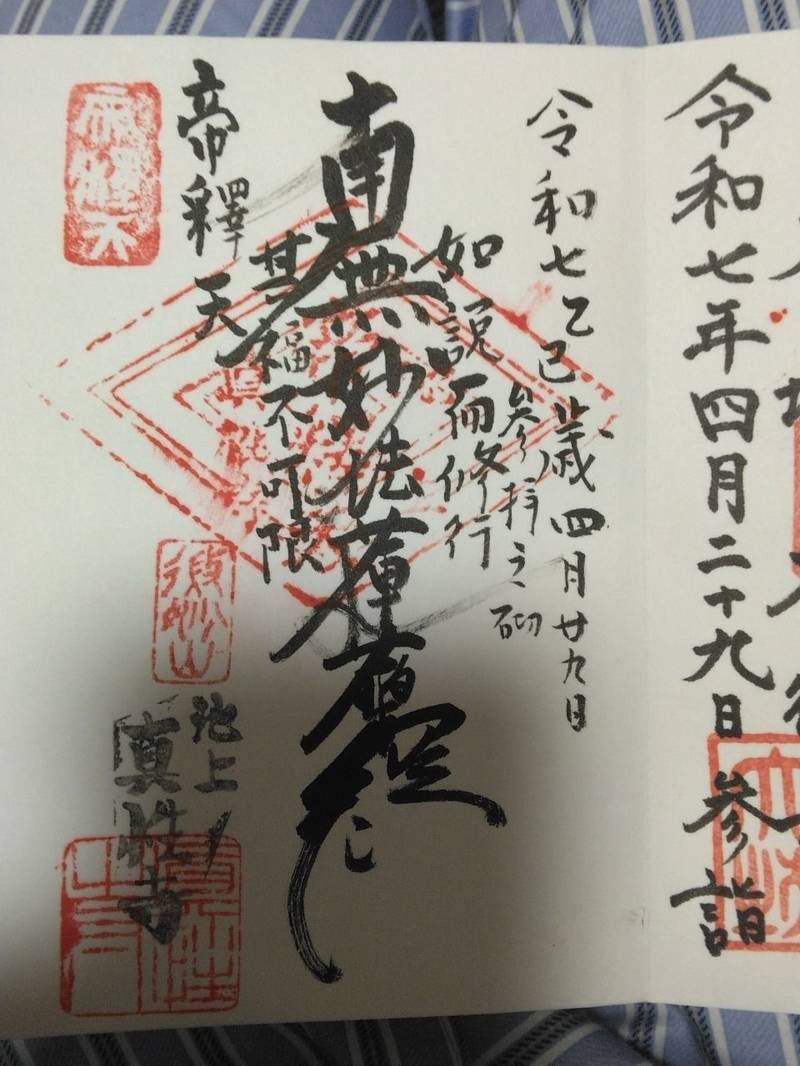 令和七年四月二十九日 参詣
令和七乙巳歳四月廿九日
参拝之砌
如説而修行
南無妙法蓮華経
其福不可限
帝釋天
帝釋天
池上
真性寺